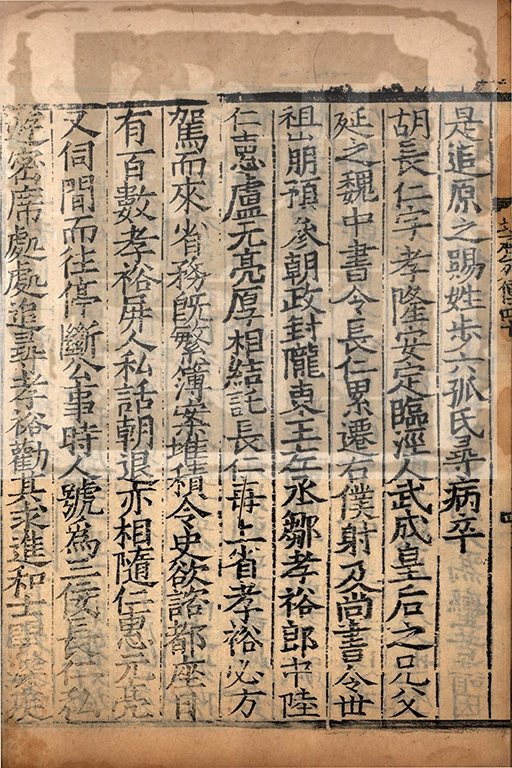 是追原之賜姓步六孤氏尋病卒
胡長仁字孝隆安定臨涇人武成皇后之兄父
延之魏中書令長仁累遷右僕射及尚書令世
祖崩預參朝政封隴東王左丞鄒孝裕郎中陸
仁惠盧元亮厚相結託長仁每上省孝裕必方
駕而來省務既繁簿案堆積令史欲諮都座日
有百數孝裕屏人私話朝退亦相隨仁惠元亮
又伺間而往停斷公事時人號為三佞長仁私
遊密席處處追尋孝裕勸其求進和士開深疾